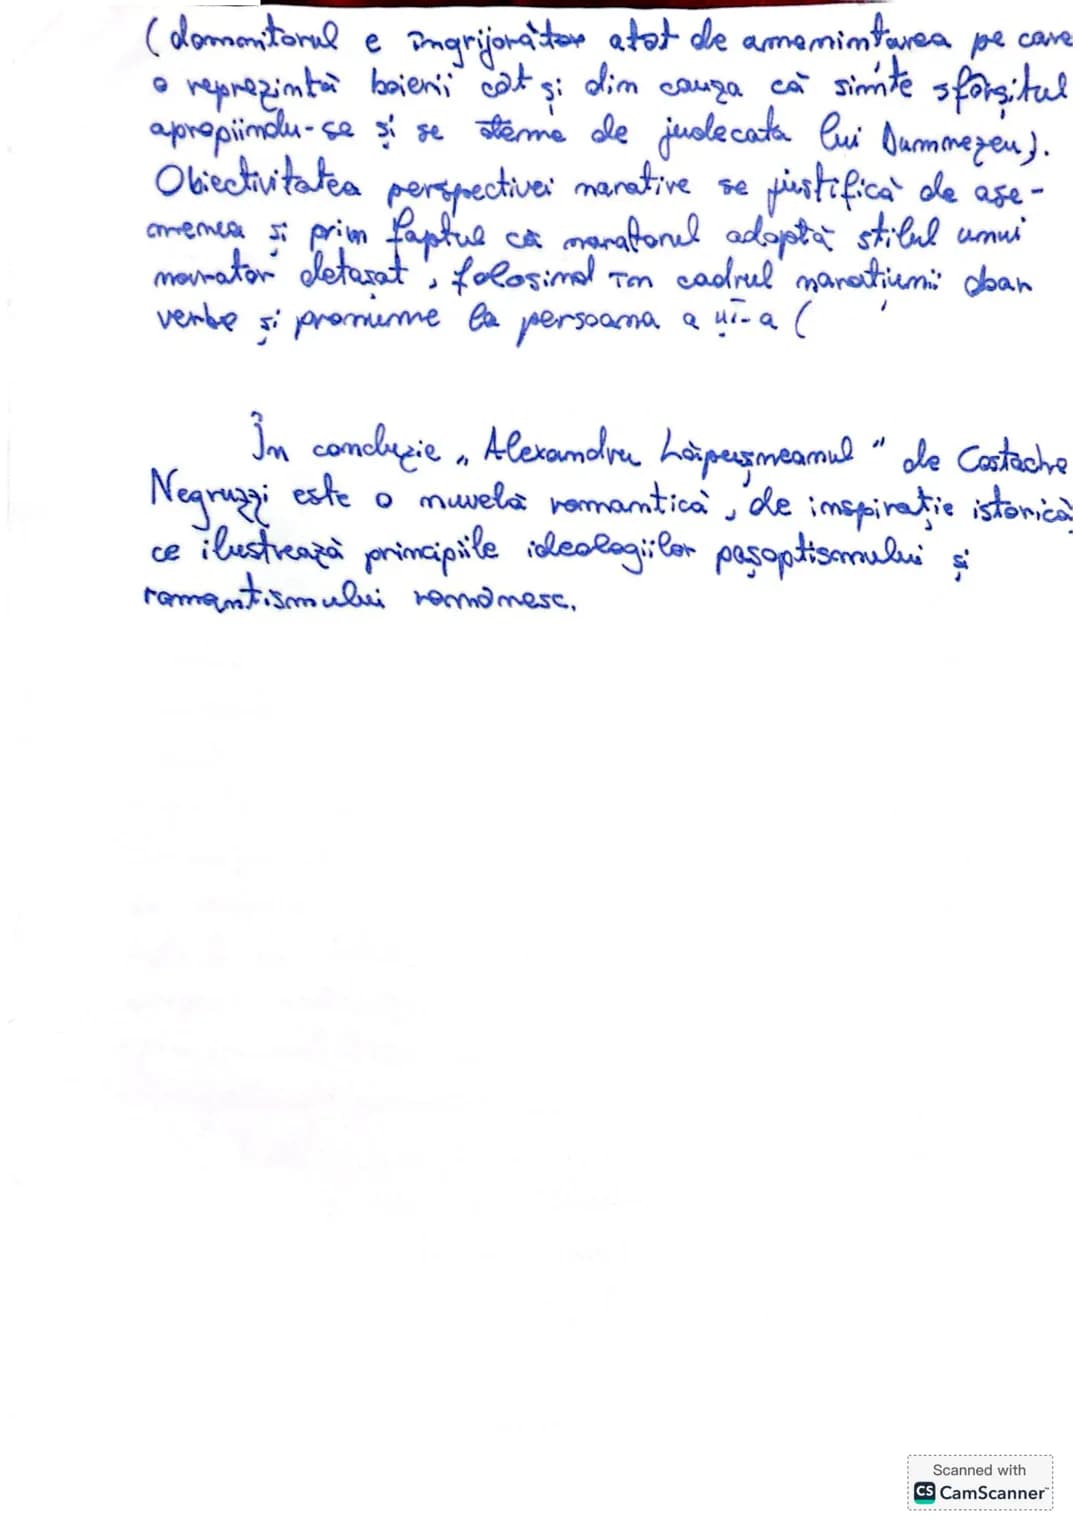 (domnitorul e îngrijorător atât de amenințarea pe care
o reprezintă boierii cât și din cauza că simte sfârșitul
apropiindu-se și se teme de judecata lui Dumnezeu).
Obiectivitatea perspectivei narative se justifică de ase-
menea și prin faptul că naratorul adoptă stilul unui
narator detașat, folosind în cadrul narațiunii doar
verbe și pronume la persoana a III-a (
În concluzie „Alexandru Lăpușneanul" de Costache
Negruzzi este o nuvelă romantică, de inspirație istorică
ce ilustrează principiile ideologiilor pașoptismului și
romantismului românesc.
Scanned with
CS CamScanner